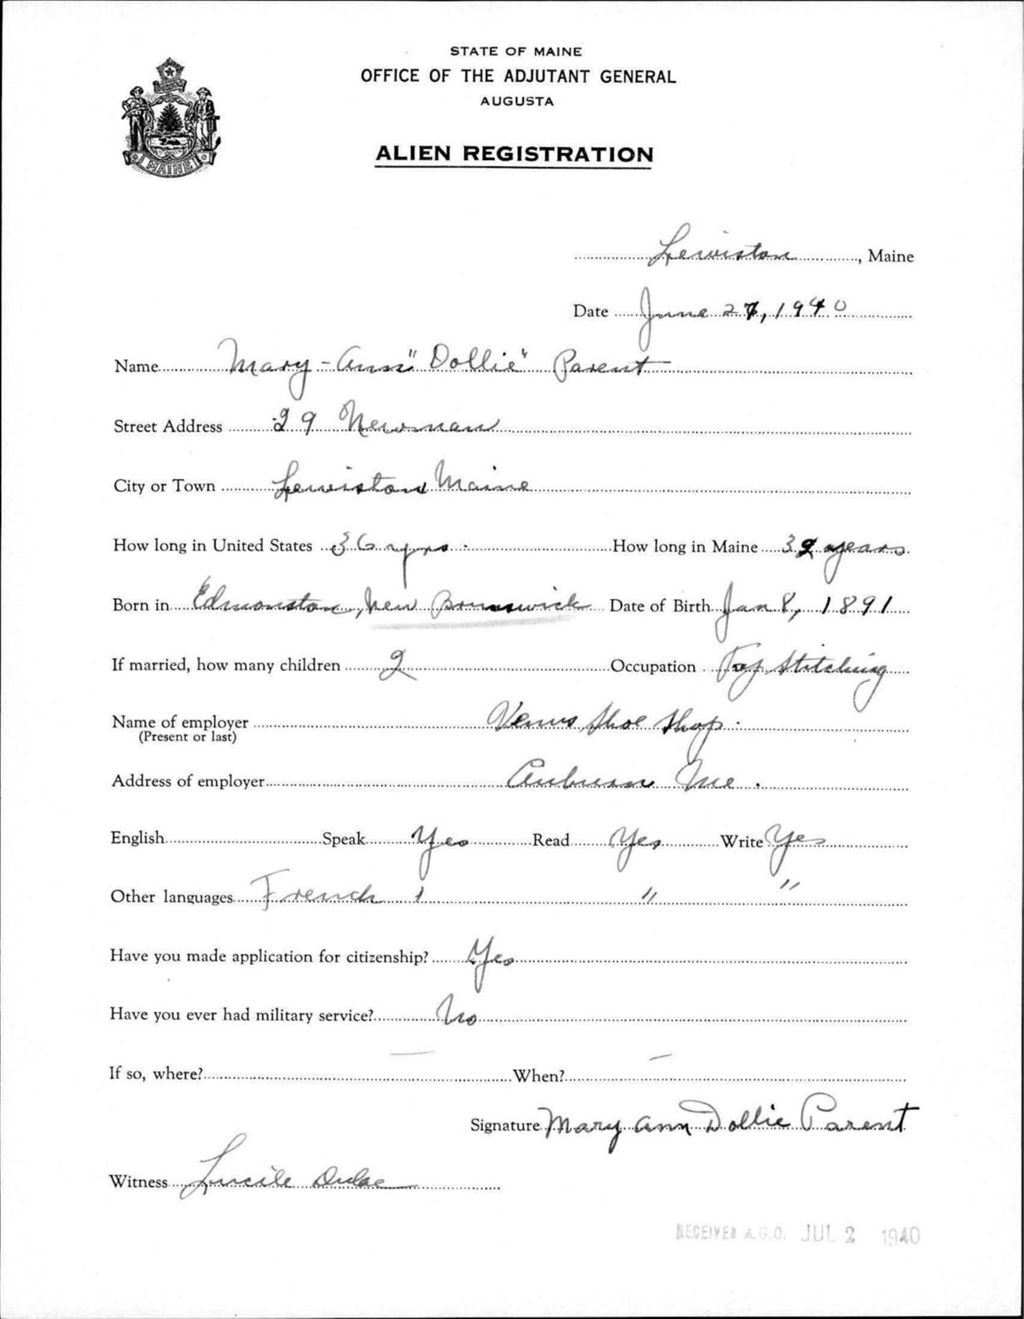 STATE OF MAINE
OFFICE OF THE ADJUTANT GENERAL
AUGUSTA
ALIEN REGISTRATION
MAINE
Lewiston, Maine
Date June 27, 1940
Name Mary-Ann "Dollie" Parent
Street Address 29 Newman
City or Town Lewiston Maine
How long in United States 36 yrs. How long in Maine 32 years
Born in Edmonston, New Brunswick Date of Birth Jan 8, 1891
If married, how many children 2 Occupation Top Stitching
Name of employer Venus Shoe Shop.
(Present or last)
Address of employer Auburn Me.
English Speak Yes Read Yes Write Yes
Other languages French " " "
Have you made application for citizenship? Yes
Have you ever had military service? No
If so, where? — When? —
Signature Mary Ann Dollie Parent
Witness Lucile
RECEIVED A.G.O. JUL 2 1940